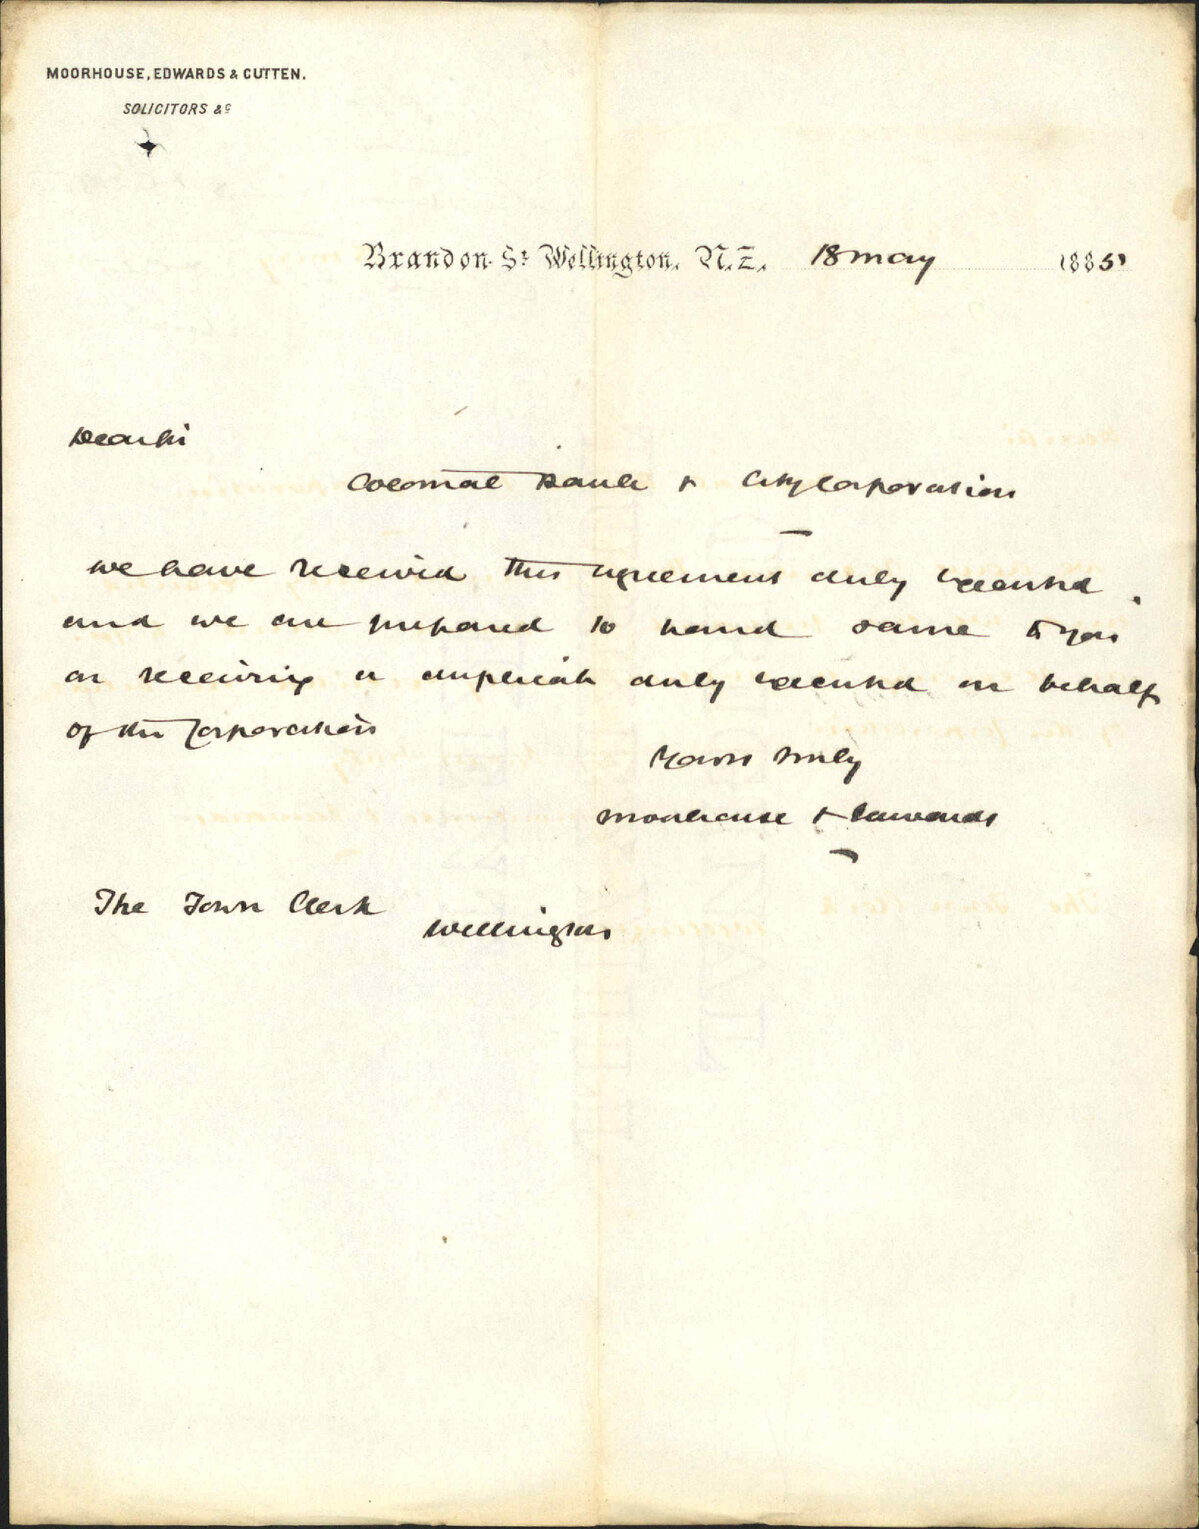 MOORHOUSE, EDWARDS & CUTTEN.
SOLICITORS &c
Brandon St Wellington, N.Z. 18 May 1885
Dear Sir
Colonial Bank & City Corporation
We have received this agreement duly executed
and we are prepared to hand same to you
on receiving a duplicate duly executed on behalf
of the Corporation
Yours truly
Moorhouse & Edwards
The Town Clerk
Wellington